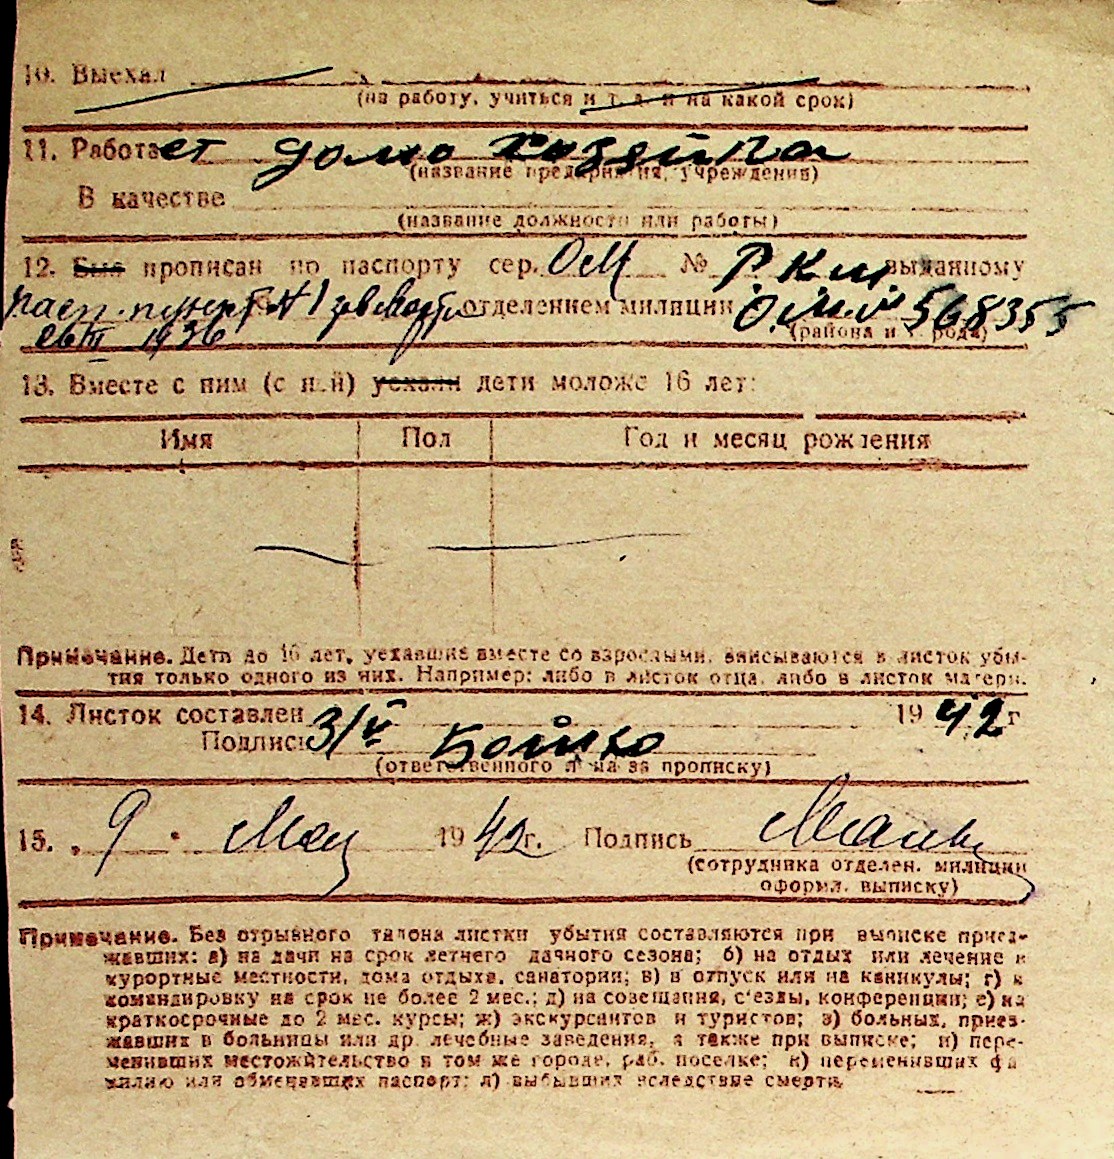 10. Выехал
(на работу, учиться и т. д. и на какой срок)
11. Работает домо хозяйка
(название предприятия, учреждения)
В качестве
(название должности или работы)
12. Был прописан по паспорту сер. ОМ № РКМ выданному
пасп. пункт № 1 отделением милиции О.М. № 568355
26 III 1936 (района и города)
13. Вместе с ним (с ней) уехали дети моложе 16 лет:
Имя Пол Год и месяц рождения
Примечание. Дети до 16 лет, уехавшие вместе со взрослыми, вписываются в листок убы-
тия только одного из них. Например: либо в листок отца, либо в листок матери.
14. Листок составлен 1942 г
Подпись 31/V Бойко
(ответственного лица за прописку)
15. „ 9 " Мая 1942 г. Подпись
(сотрудника отделен. милиции
оформл. выписку)
Примечание. Без отрывного талона листки убытия составляются при выписке приез-
жавших: а) на дачи на срок летнего дачного сезона; б) на отдых или лечение в
курортные местности, дома отдыха, санатории; в) в отпуск или на каникулы; г) в
командировку на срок не более 2 мес.; д) на совещания, с'езды, конференции; е) на
краткосрочные до 2 мес. курсы; ж) экскурсантов и туристов; з) больных, приез-
жавших в больницы или др. лечебные заведения, а также при выписке; и) пере-
менивших местожительство в том же городе, раб. поселке; к) переменивших фа
милию или обменявших паспорт; л) выбывших вследствие смерти.